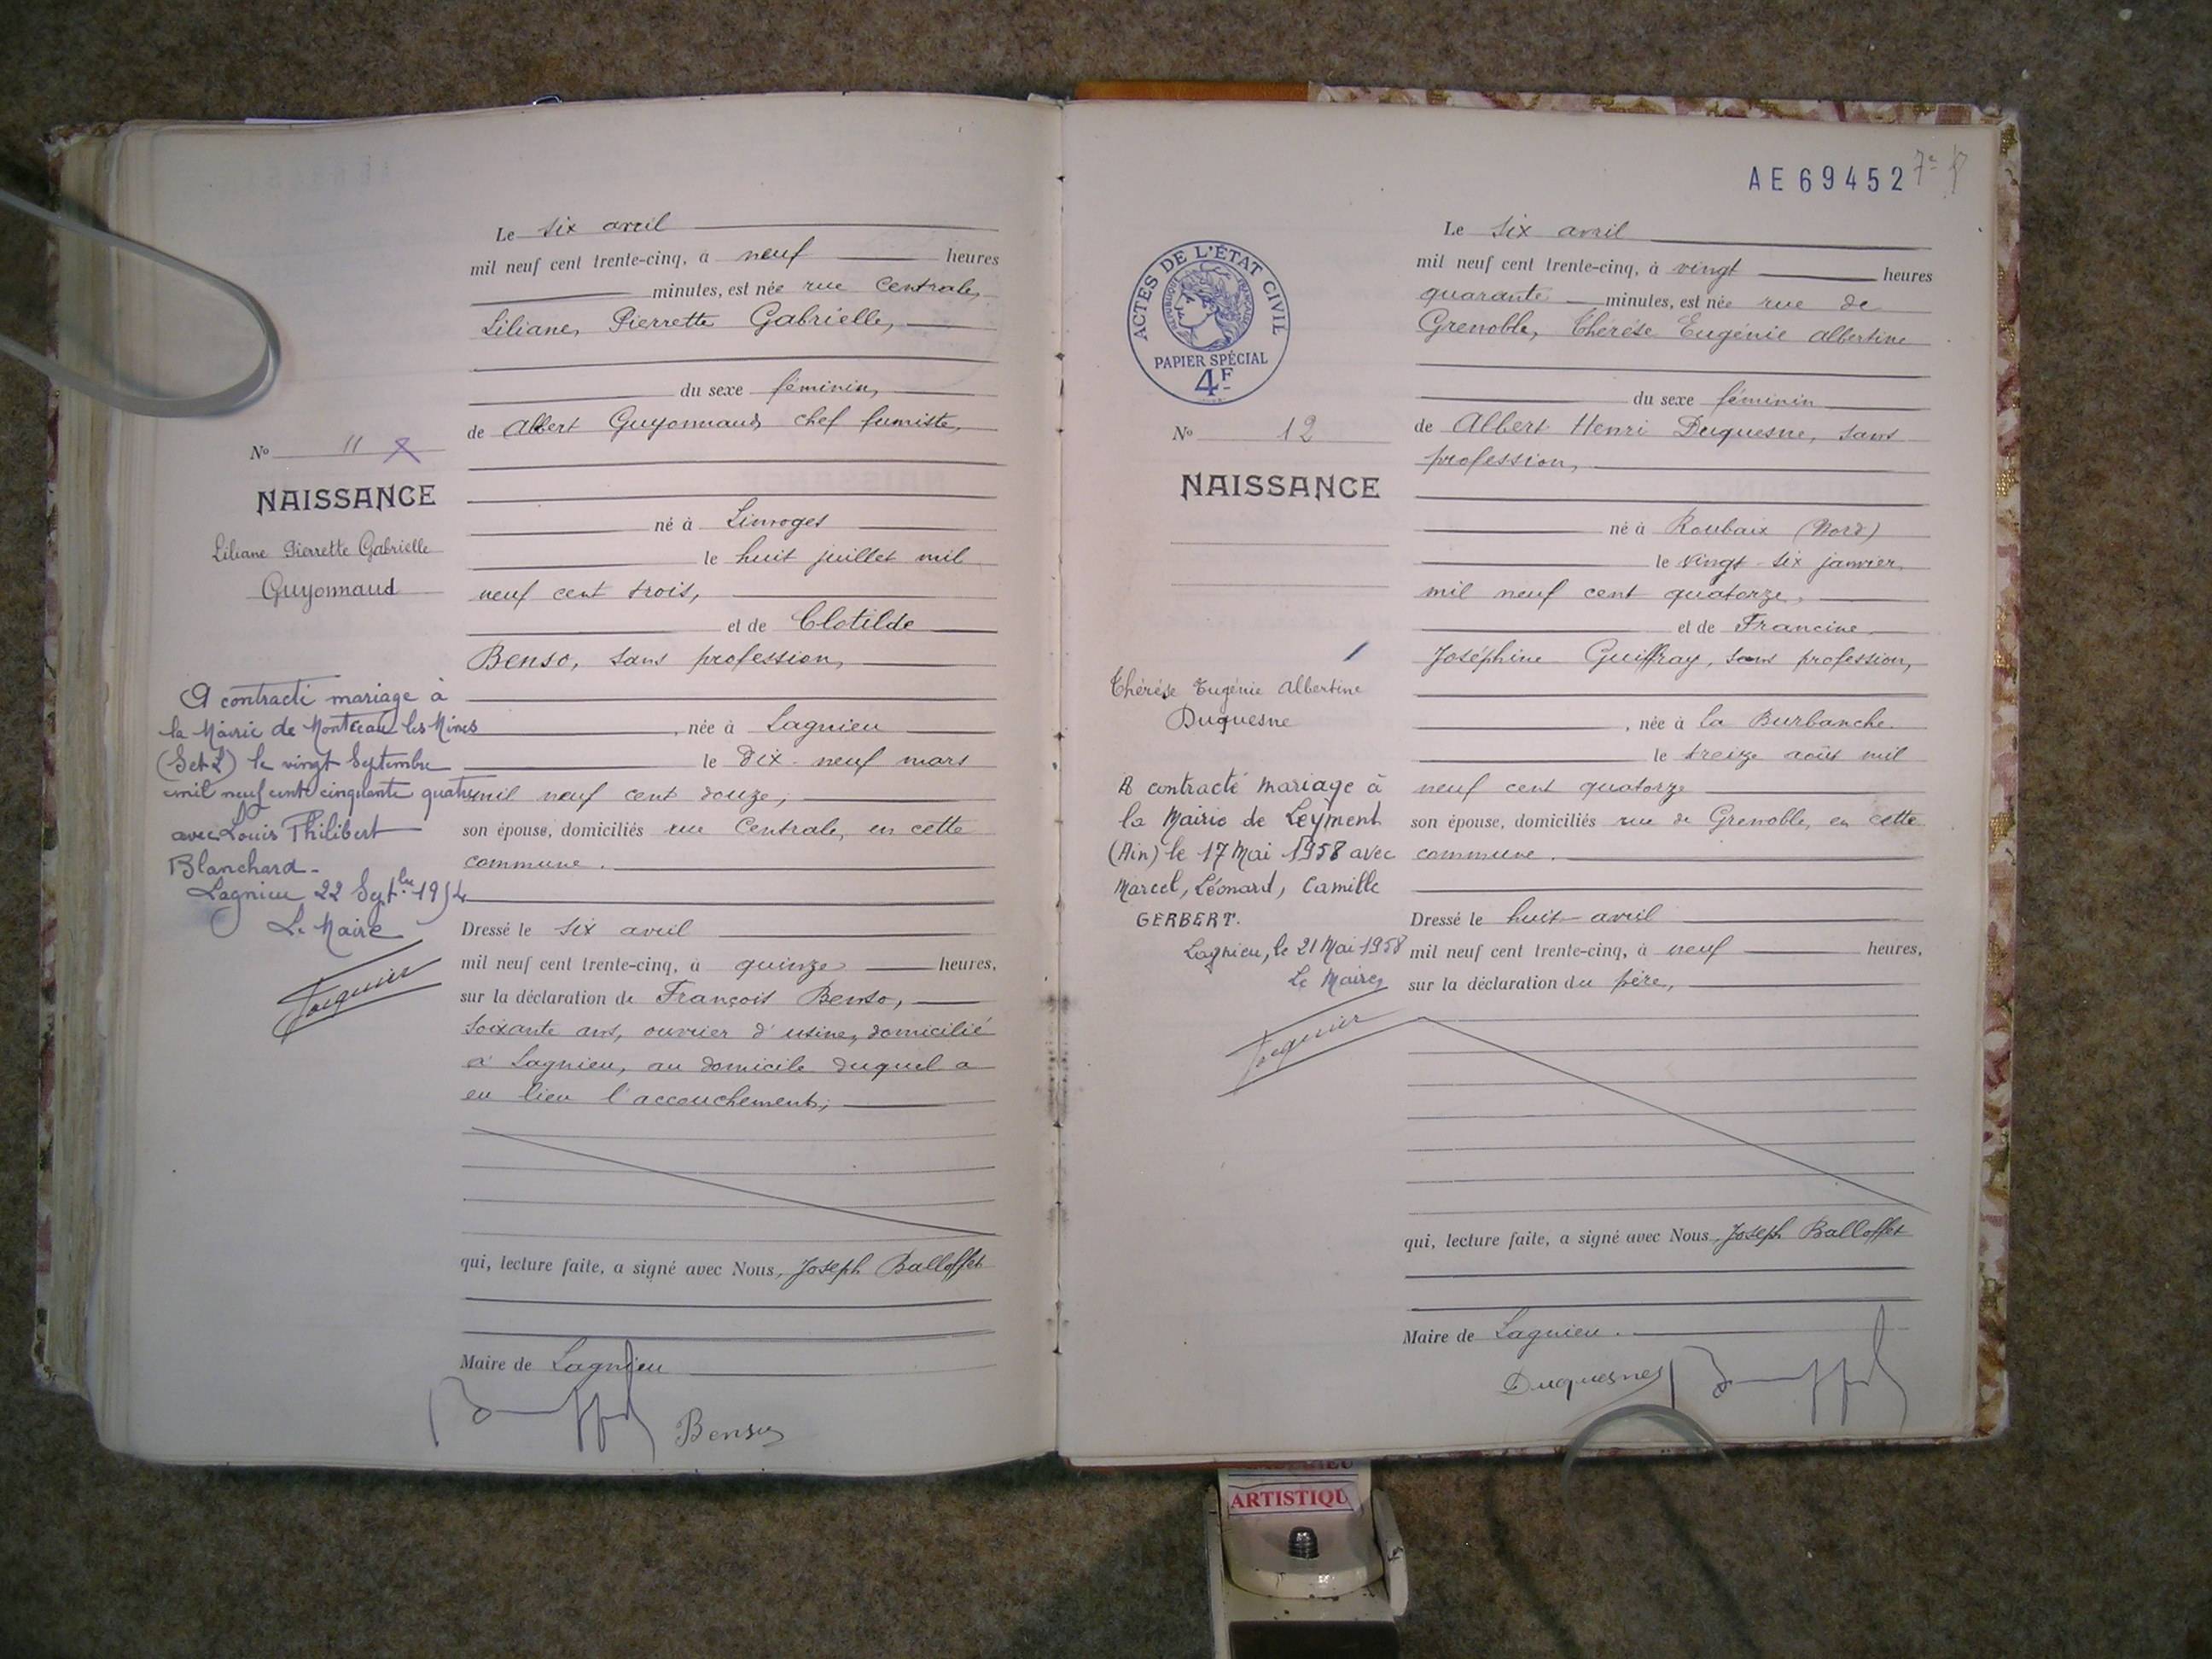 Le six avril
mil neuf cent trente-cinq, à neuf heures
minutes, est née rue Centrale,
Liliane, Pierrette Gabrielle,
du sexe féminin,
de Albert Guyonnaud, chef fumiste,
né à Limoges
le huit juillet mil
neuf cent trois,
et de Clotilde
Benso, sans profession,
, née à Lagnieu
le dix-neuf mars
mil neuf cent douze,
son épouse, domiciliés rue Centrale, en cette
commune.
Dressé le six avril
mil neuf cent trente-cinq, à quinze heures,
sur la déclaration de François Benso,
soixante ans, ouvrier d'usine, domicilié
à Lagnieu, au domicile duquel a
eu lieu l'accouchement,
qui, lecture faite, a signé avec Nous, Joseph Balloffet
Maire de Lagnieu
Benso
No 11
NAISSANCE
Liliane Pierrette Gabrielle
Guyonnaud
A contracté mariage à
la Mairie de Montceau les Mines
(S et L) le vingt Septembre
mil neuf cent cinquante quatre
avec Louis Philibert
Blanchard -
Lagnieu 22 Sept.bre 1954
Le Maire
AE69452
ACTES DE L'ÉTAT CIVIL
RÉPUBLIQUE FRANÇAISE
PAPIER SPÉCIAL
4F
No 12
NAISSANCE
Thérèse Eugénie Albertine
Duquesne
A contracté mariage à
la Mairie de Leyment
(Ain) le 17 Mai 1958 avec
Marcel, Léonard, Camille
GERBERT.
Lagnieu, le 21 Mai 1958
Le Maire,
Le six avril
mil neuf cent trente-cinq, à vingt heures
quarante minutes, est née rue de
Grenoble, Thérèse Eugénie Albertine
du sexe féminin
de Albert Henri Duquesne, sans
profession,
né à Roubaix (Nord)
le vingt-six janvier
mil neuf cent quatorze,
et de Francine
Joséphine Guiffray, sans profession,
, née à la Burbanche
le treize août mil
neuf cent quatorze
son épouse, domiciliés rue de Grenoble, en cette
commune.
Dressé le huit avril
mil neuf cent trente-cinq, à neuf heures,
sur la déclaration du père,
qui, lecture faite, a signé avec Nous, Joseph Balloffet
Maire de Lagnieu.
Duquesne
ARTISTIQU